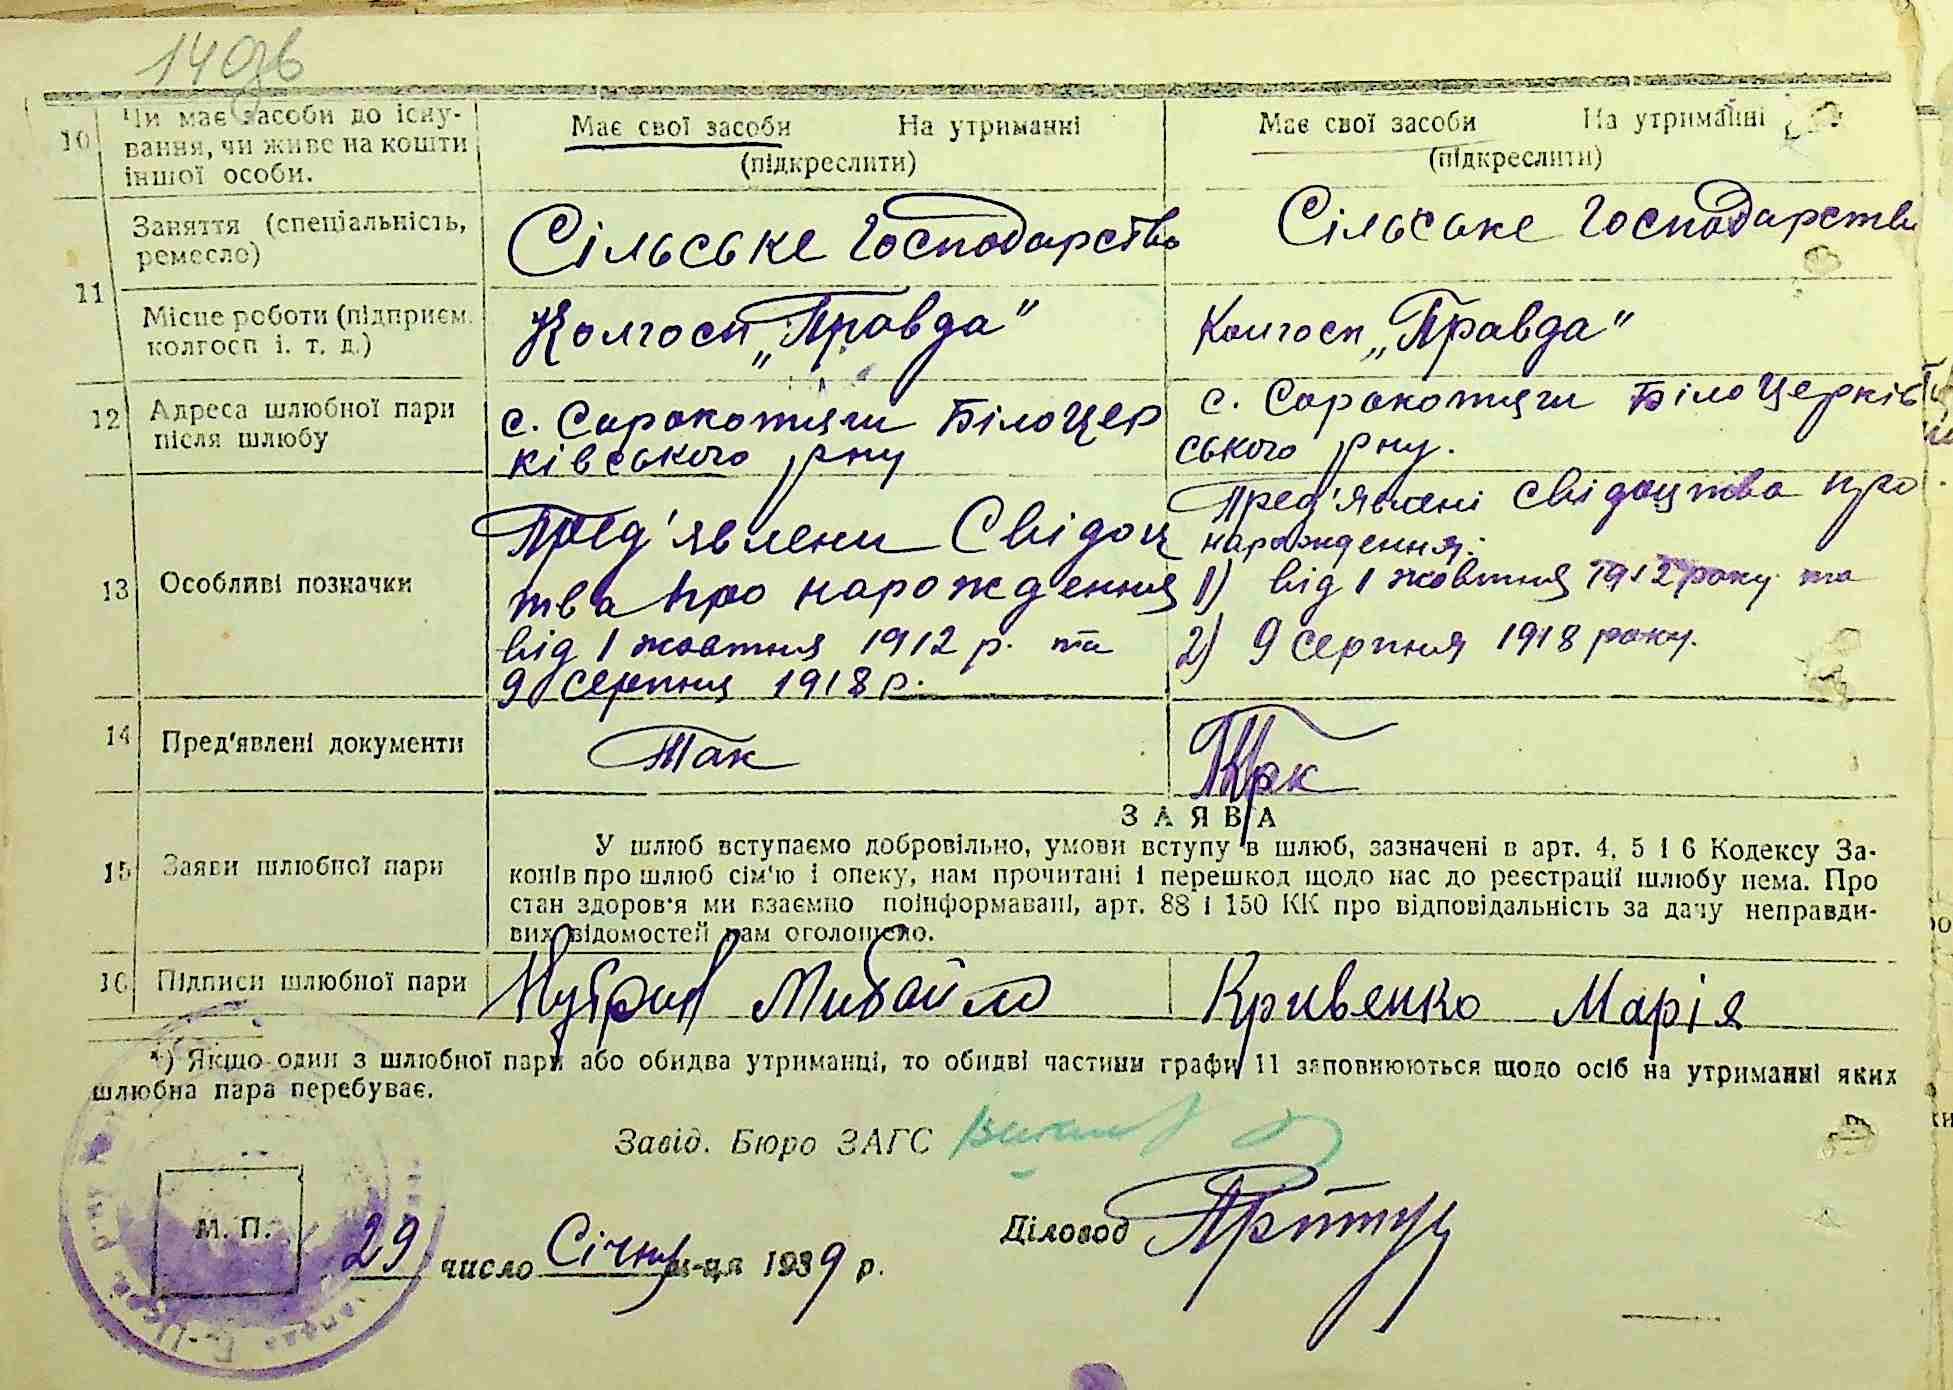 14 зв
10 Чи має засоби до існу-
вання, чи живе на кошти
іншої особи.
Має свої засоби На утриманні
(підкреслити)
Має свої засоби На утриманні
(підкреслити)
11 Заняття (спеціальність,
ремесло)
Сільське господарство
Сільське господарство
Місце роботи (підприєм.
колгосп і. т. д.)
Колгосп „Правда"
Колгосп „Правда"
12 Адреса шлюбної пари
після шлюбу
с. Сорокотяги Білоцер
ківського рну
с. Сорокотяги Білоцерків
ського рну.
13 Особливі позначки
Пред'явлени Свідоц
тва про народження
від 1 жовтня 1912 р. та
9 серпня 1918 р.
Пред'явлені свідоцтва про
народження:
1) від 1 жовтня 1912 року та
2) 9 серпня 1918 року.
14 Пред'явлені документи
Так
Так
15 Заяви шлюбної пари
ЗАЯВА
У шлюб вступаємо добровільно, умови вступу в шлюб, зазначені в арт. 4, 5 і 6 Кодексу За-
конів про шлюб сім'ю і опеку, нам прочитані і перешкод щодо нас до реєстрації шлюбу нема. Про
стан здоров'я ми взаємно поінформавані, арт. 88 і 150 КК про відповідальність за дачу неправди-
вих відомостей нам оголошено.
16 Підписи шлюбної пари
Михайло
Кривенко Марія
*) Якщо один з шлюбної пари або обидва утриманці, то обидві частини графи 11 заповнюються щодо осіб на утриманні яких
шлюбна пара перебуває.
Завід. Бюро ЗАГС
М. П.
Діловод
29 число Січня м-ця 1939 р.